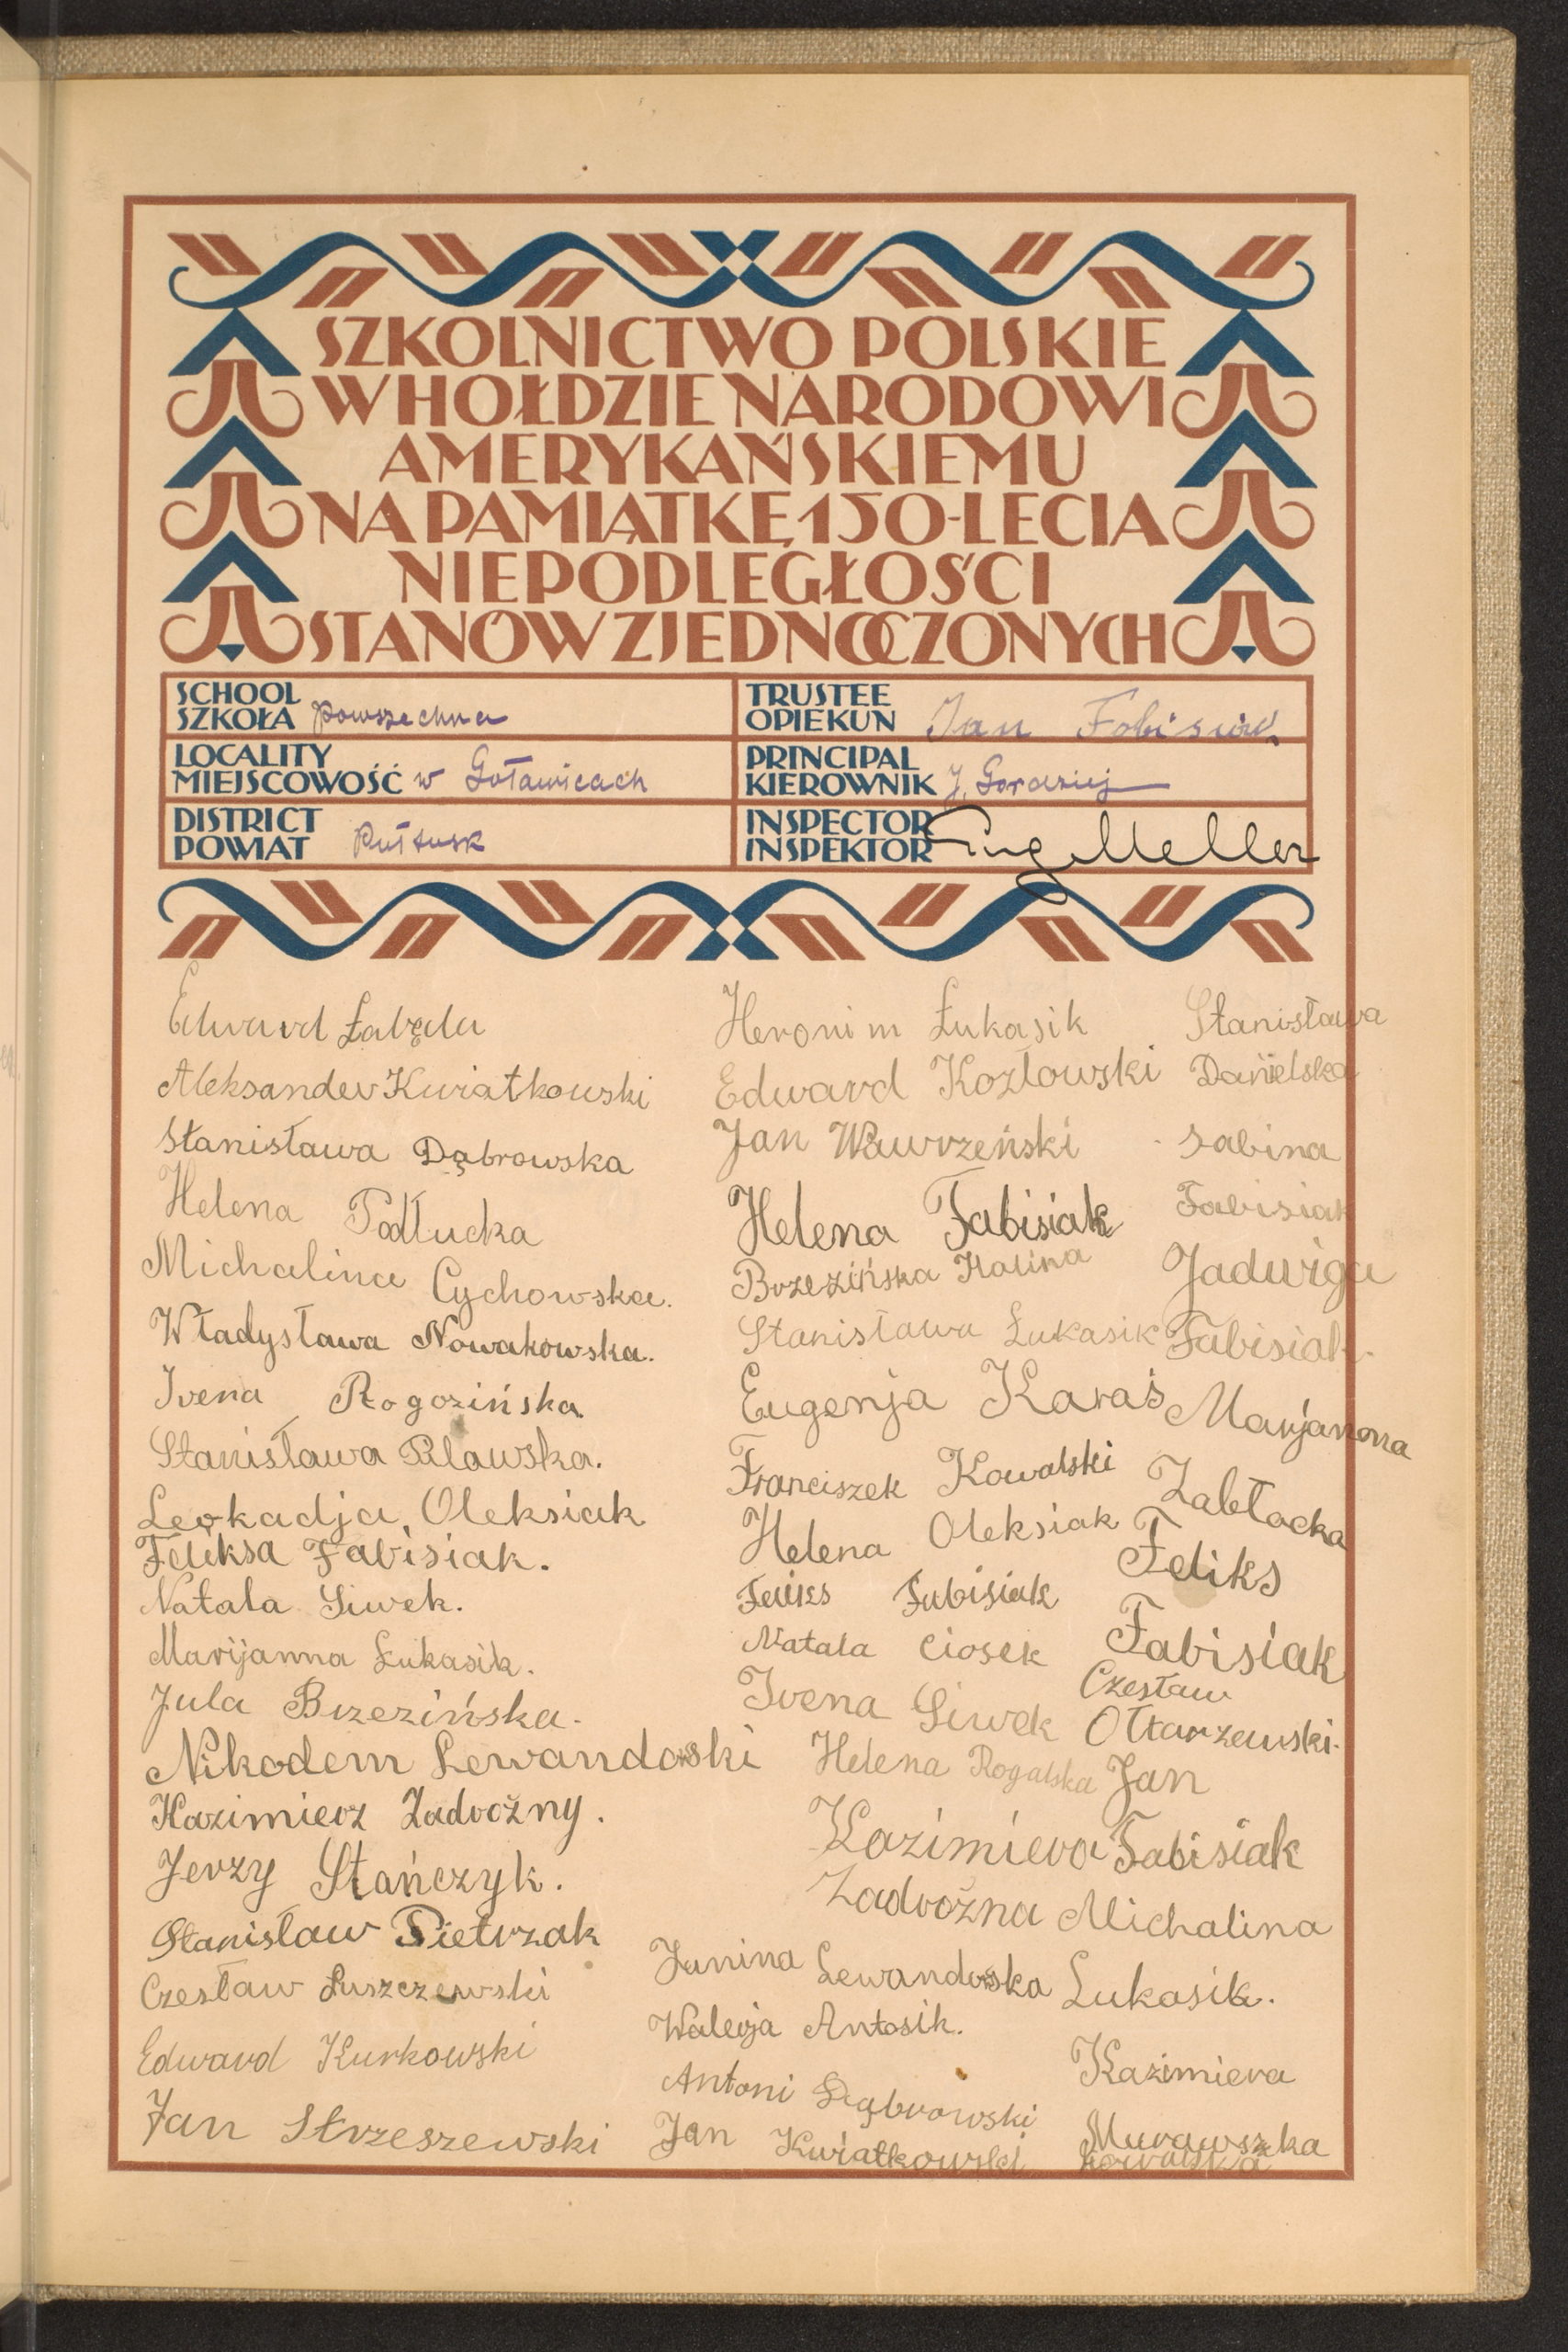 SZKOLNICTWO POLSKIE
W HOŁDZIE NARODOWI
AMERYKAŃSKIEMU
NA PAMIĄTKĘ 150-LECIA
NIEPODLEGŁOŚCI
STANÓW ZJEDNOCZONYCH
SCHOOL
SZKOŁA powszechna
LOCALITY
MIEJSCOWOŚĆ w Goławicach
DISTRICT
POWIAT Pułtusk
TRUSTEE
OPIEKUN Jan Fabisiak
PRINCIPAL
KIEROWNIK J. Gordziej
INSPECTOR
INSPEKTOR Eug Meller
Edward Łabęda
Aleksander Kwiatkowski
Stanisława Dąbrowska
Helena Podłucka
Michalina Cychowska.
Władysława Nowakowska.
Irena Rogozińska
Stanisława Pilawska.
Leokadja Oleksiak
Feliksa Fabisiak.
Natala Siwek.
Marijanna Łukasik.
Jula Brzezińska.
Nikodem Lewandoski
Kazimierz Zadrożny.
Jerzy Stańczyk.
Stanisław Pietrzak
Czesław Łuszczewski
Edward Kurkowski
Jan Strzeszewski
Heronim Łukasik
Edward Kozłowski
Jan Wawrzeński
Helena Fabisiak
Brzezińska Halina
Stanisława Łukasik
Eugenja Karaś
Franciszek Kowalski
Helena Oleksiak
Feliks Fabisiak
Natala Ciosek
Irena Siwek
Helena Rogalska
Kazimiera
Zadrożna
Janina Lewandoska
Walerja Antosik.
Antoni Dąbrowski
Jan Kwiatkowski
Stanisława
Danielska
Sabina
Fabisiak
Jadwiga
Fabisiak.
Marjanna
Zabłocka
Feliks
Fabisiak
Czesław
Ołtarzewski.
Jan
Fabisiak
Michalina
Łukasik.
Kazimiera
Murawszka